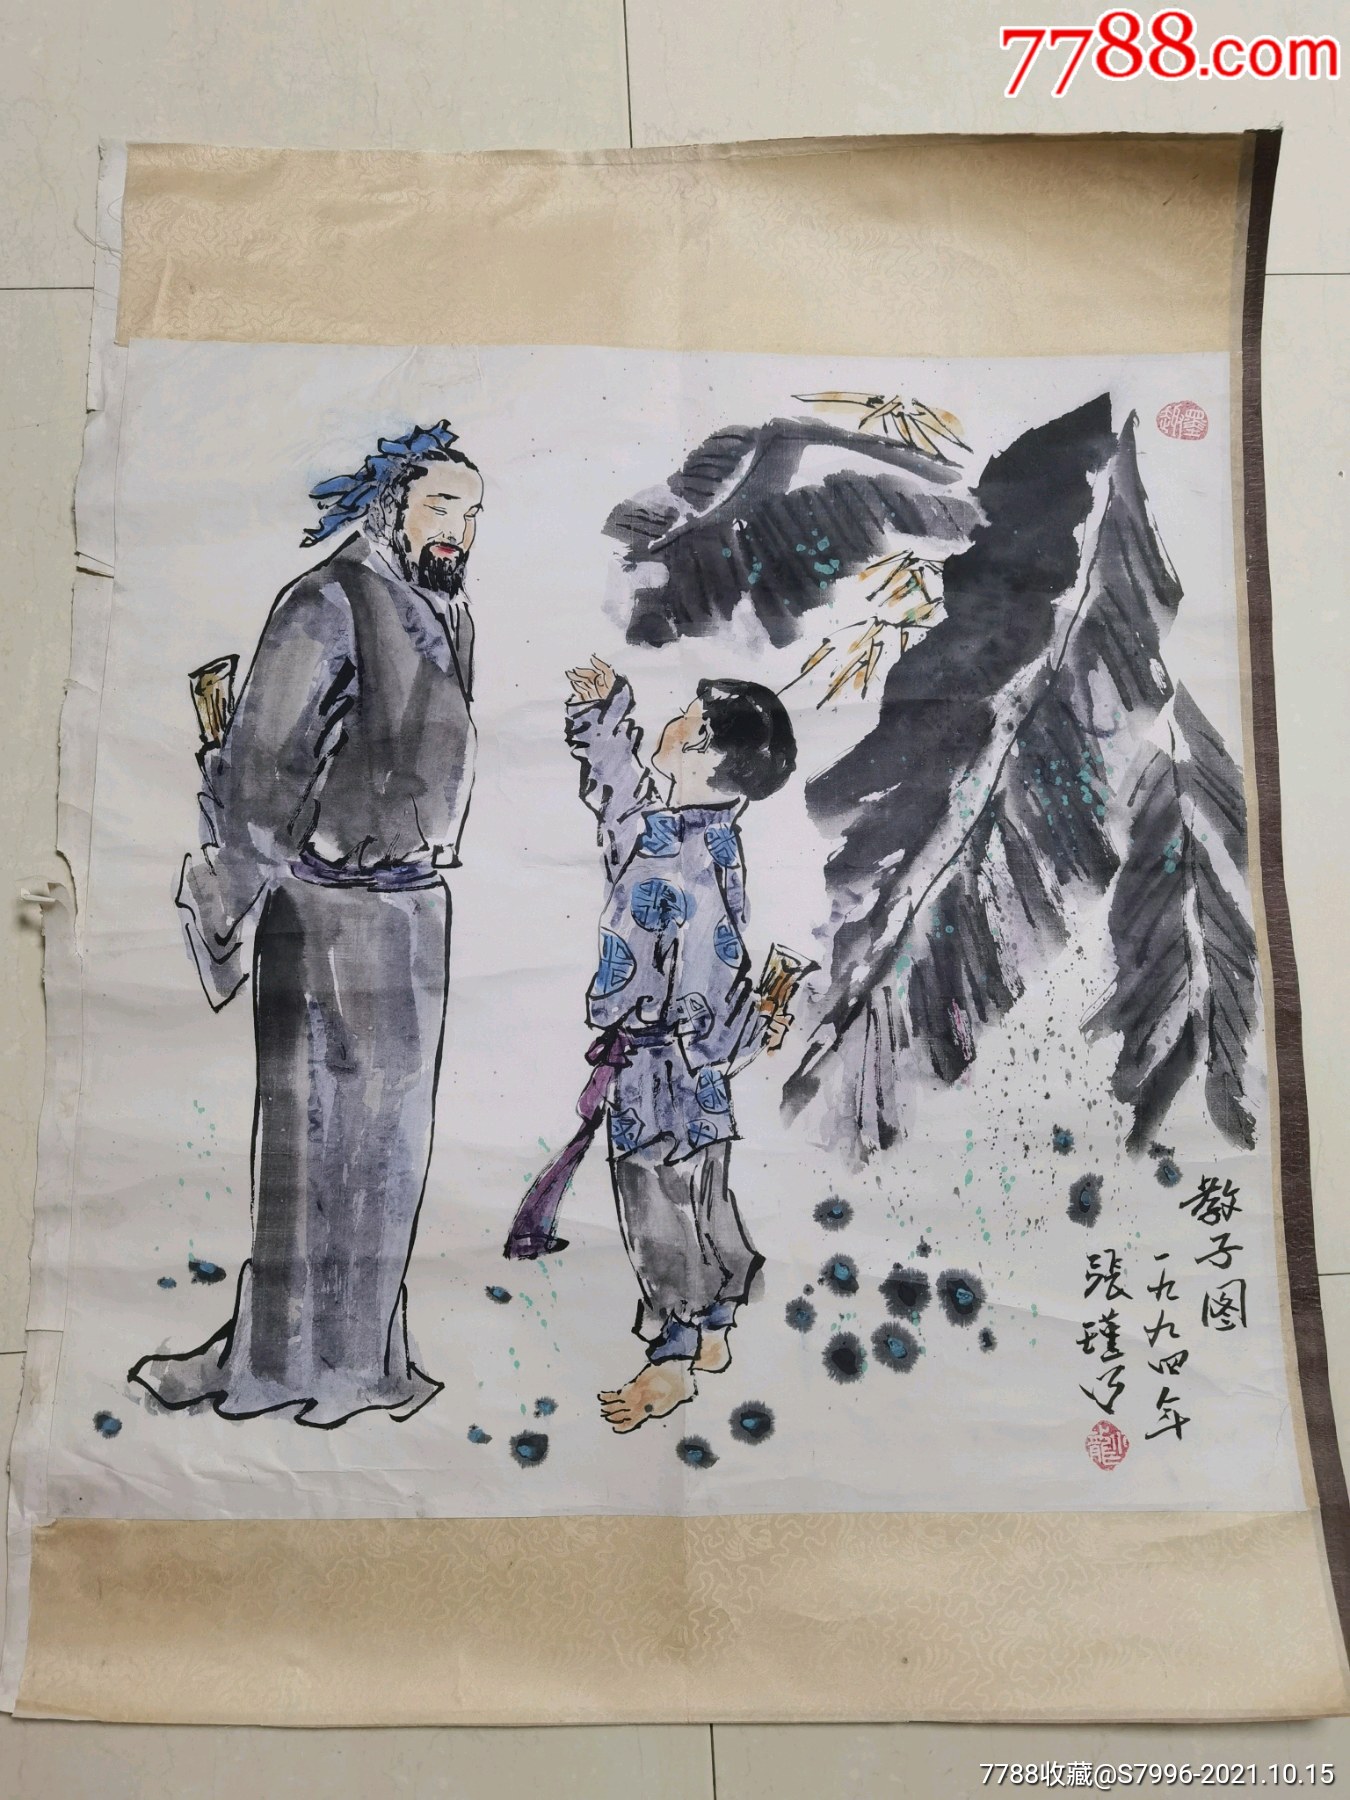 7788.com
教子图
一九九四年
張瑾写
7788收藏@S7996-2021.10.15